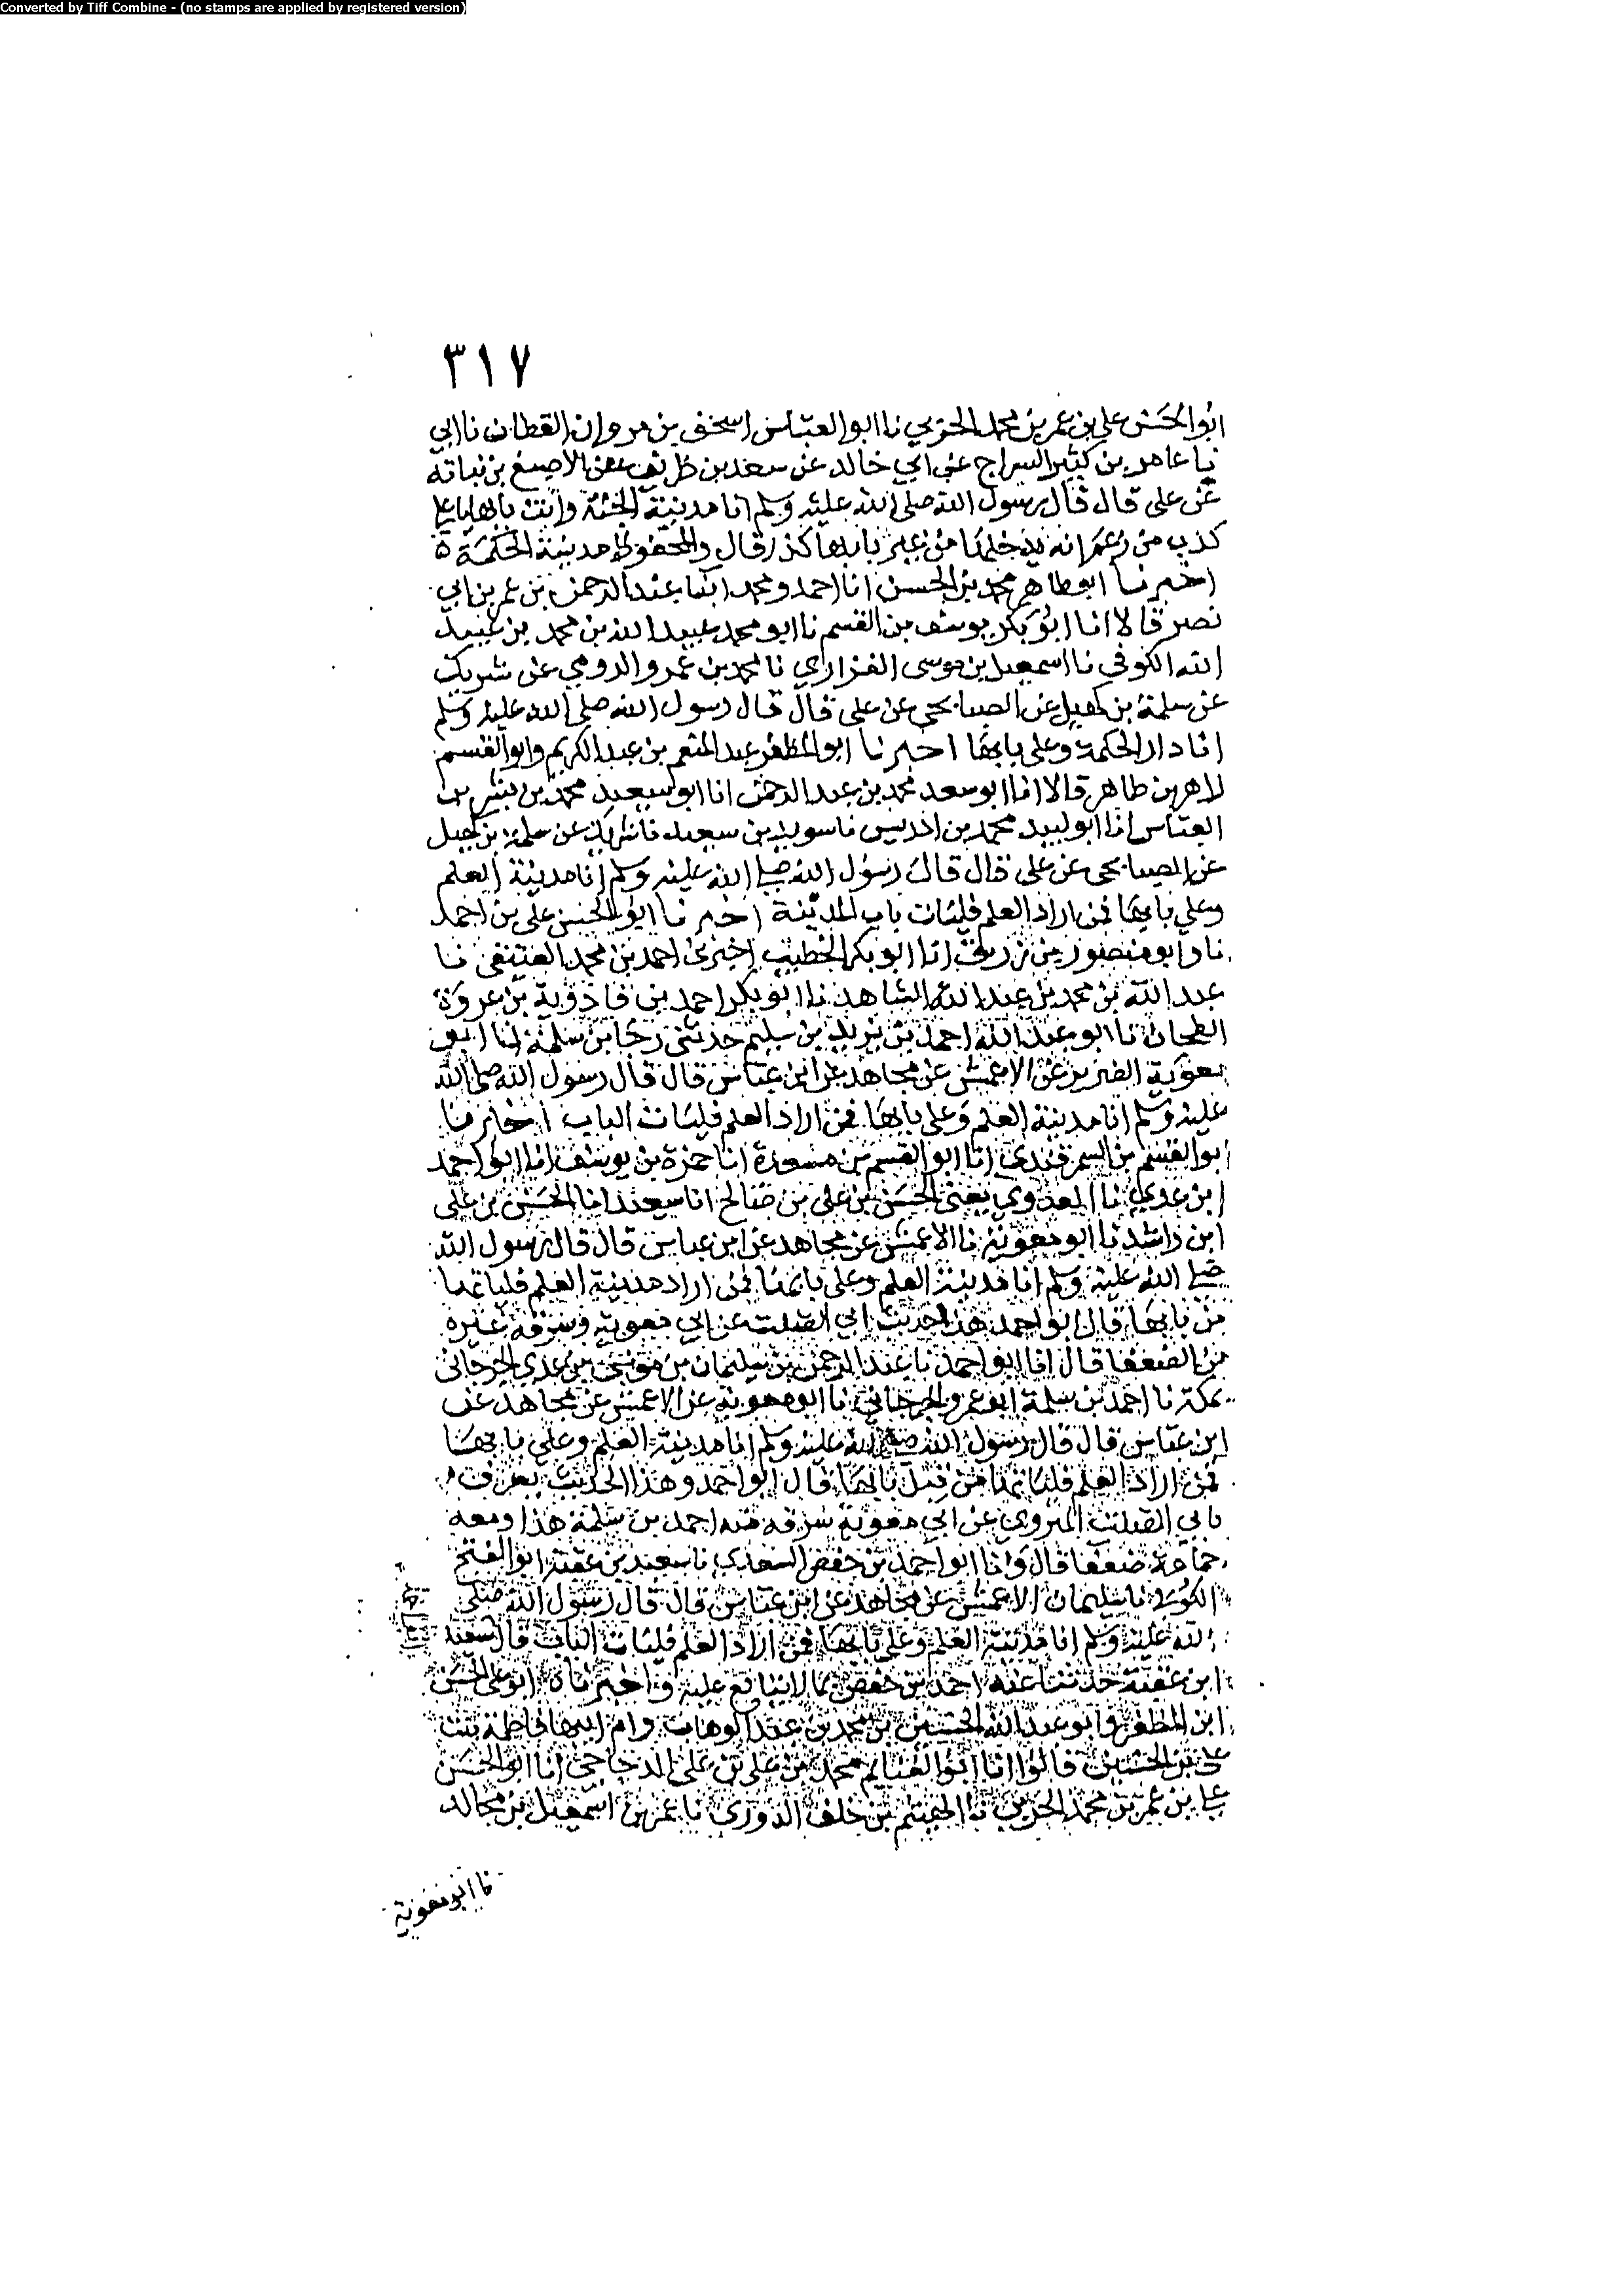 Converted by Tiff Combine - (no stamps are applied by registered version)
٣١٧
ابوالحسن علي بن عمر بن محمد الحربي نا ابو العباس اسحق بن مروان القطان نا ابي
نا عامر بن كثير السراج عن ابي خالد عن سعد بن طريف عن الاصبغ بن نباته
عن علي قال قال رسول الله صلى الله عليه وسلم انا مدينة الجنة وانت بابها يا علي
كذب من زعم انه يدخلها من غير بابها كذا قال والمحفوظ مدينة الحكمة ة
اخبرنا ابو طاهر محمد بن الحسن انا احمد ومحمد ابنا عبد الرحمن بن عمر بن ابي
نصر قالا انا ابو بكر يوسف بن القسم نا ابو محمد عبيد الله بن محمد بن عبيد
الله الكوفي نا اسمعيل بن موسى الفزاري نا محمد بن عمرو الرومي عن شريك
عن سلمة بن كهيل عن الصنابحي عن علي قال قال رسول الله صلى الله عليه وسلم
انا دار الحكمة وعلي بابها اخبرنا ابو المظفر عبد المنعم بن عبد الكريم وابو القسم
زاهر بن طاهر قالا انا ابو سعد محمد بن عبد الرحمن انا ابو سعيد محمد بن بشر بن
العباس انا ابو لبيد محمد بن ادريس نا سويد بن سعيد نا شريك عن سلمة بن كهيل
عن الصنابحي عن علي قال قال رسول الله صلى الله عليه وسلم انا مدينة العلم
وعلي بابها فمن اراد العلم فليات باب المدينة اخبرنا ابو الحسن علي بن احمد
نا وابو منصور بن زريق انا ابو بكر الخطيب اخبرني احمد بن محمد العتيقي نا
عبد الله بن محمد بن عبد الله الشاهد نا ابو بكر احمد بن فاذويه بن عروة
الطحان نا ابو عبد الله احمد بن يزيد بن سليم حدثني رجا بن سلمة انا ابو
معوية الضرير عن الاعمش عن مجاهد عن ابن عباس قال قال رسول الله صلى الله
عليه وسلم انا مدينة العلم وعلي بابها فمن اراد العلم فليات الباب اخبرنا
ابو القسم بن السمرقندي انا ابو القسم بن مسعدة انا حمزة بن يوسف انا ابو احمد
ابن عدي نا العدوي يعني الحسن بن علي بن صالح انا سعيد انا الحسن بن علي
ابن راشد نا ابو معوية نا الاعمش عن مجاهد عن ابن عباس قال قال رسول الله
صلى الله عليه وسلم انا مدينة العلم وعلي بابها فمن اراد مدينة العلم فلياتها
من بابها قال ابو احمد هذا حديث ابي الصلت عن ابي معوية وسرقه غيره
من الضعفا قال انا ابو احمد نا عبد الرحمن بن سليمان بن موسى بن عدي الجرجاني
بمكة نا احمد بن سلمة ابو عمرو الجرجاني نا ابو معوية عن الاعمش عن مجاهد عن
ابن عباس قال قال رسول الله صلى الله عليه وسلم انا مدينة العلم وعلي بابها
فمن اراد العلم فلياتها من قبل بابها قال ابو احمد وهذا الحديث يعرف
بابي الصلت الهروي عن ابي معوية سرقه منه احمد بن سلمة هذا ومعه
جماعة ضعفا قال وانا ابو احمد بن حفص السعدي نا سعيد بن عقبة ابو الفتح
الكوفي نا سليمان الاعمش عن مجاهد عن ابن عباس قال قال رسول الله صلى
الله عليه وسلم انا مدينة العلم وعلي بابها فمن اراد العلم فليات الباب قال سعيد
ابن عقبة حدثنا عنه احمد بن حفص بما لا يتابع عليه واخبرناه ابو علي الحسن
ابن المظفر وابو عبد الله الحسين بن محمد بن عبد الوهاب وام ابيها فاطمة بنت
علي بن الحسين قالوا انا ابو الغنائم محمد بن علي بن علي الدجاجي انا ابو الحسن
علي بن عمر بن محمد الحربي نا الهيثم بن خلف الدوري نا عمر بن اسمعيل بن مجالد
نا ابو معوية